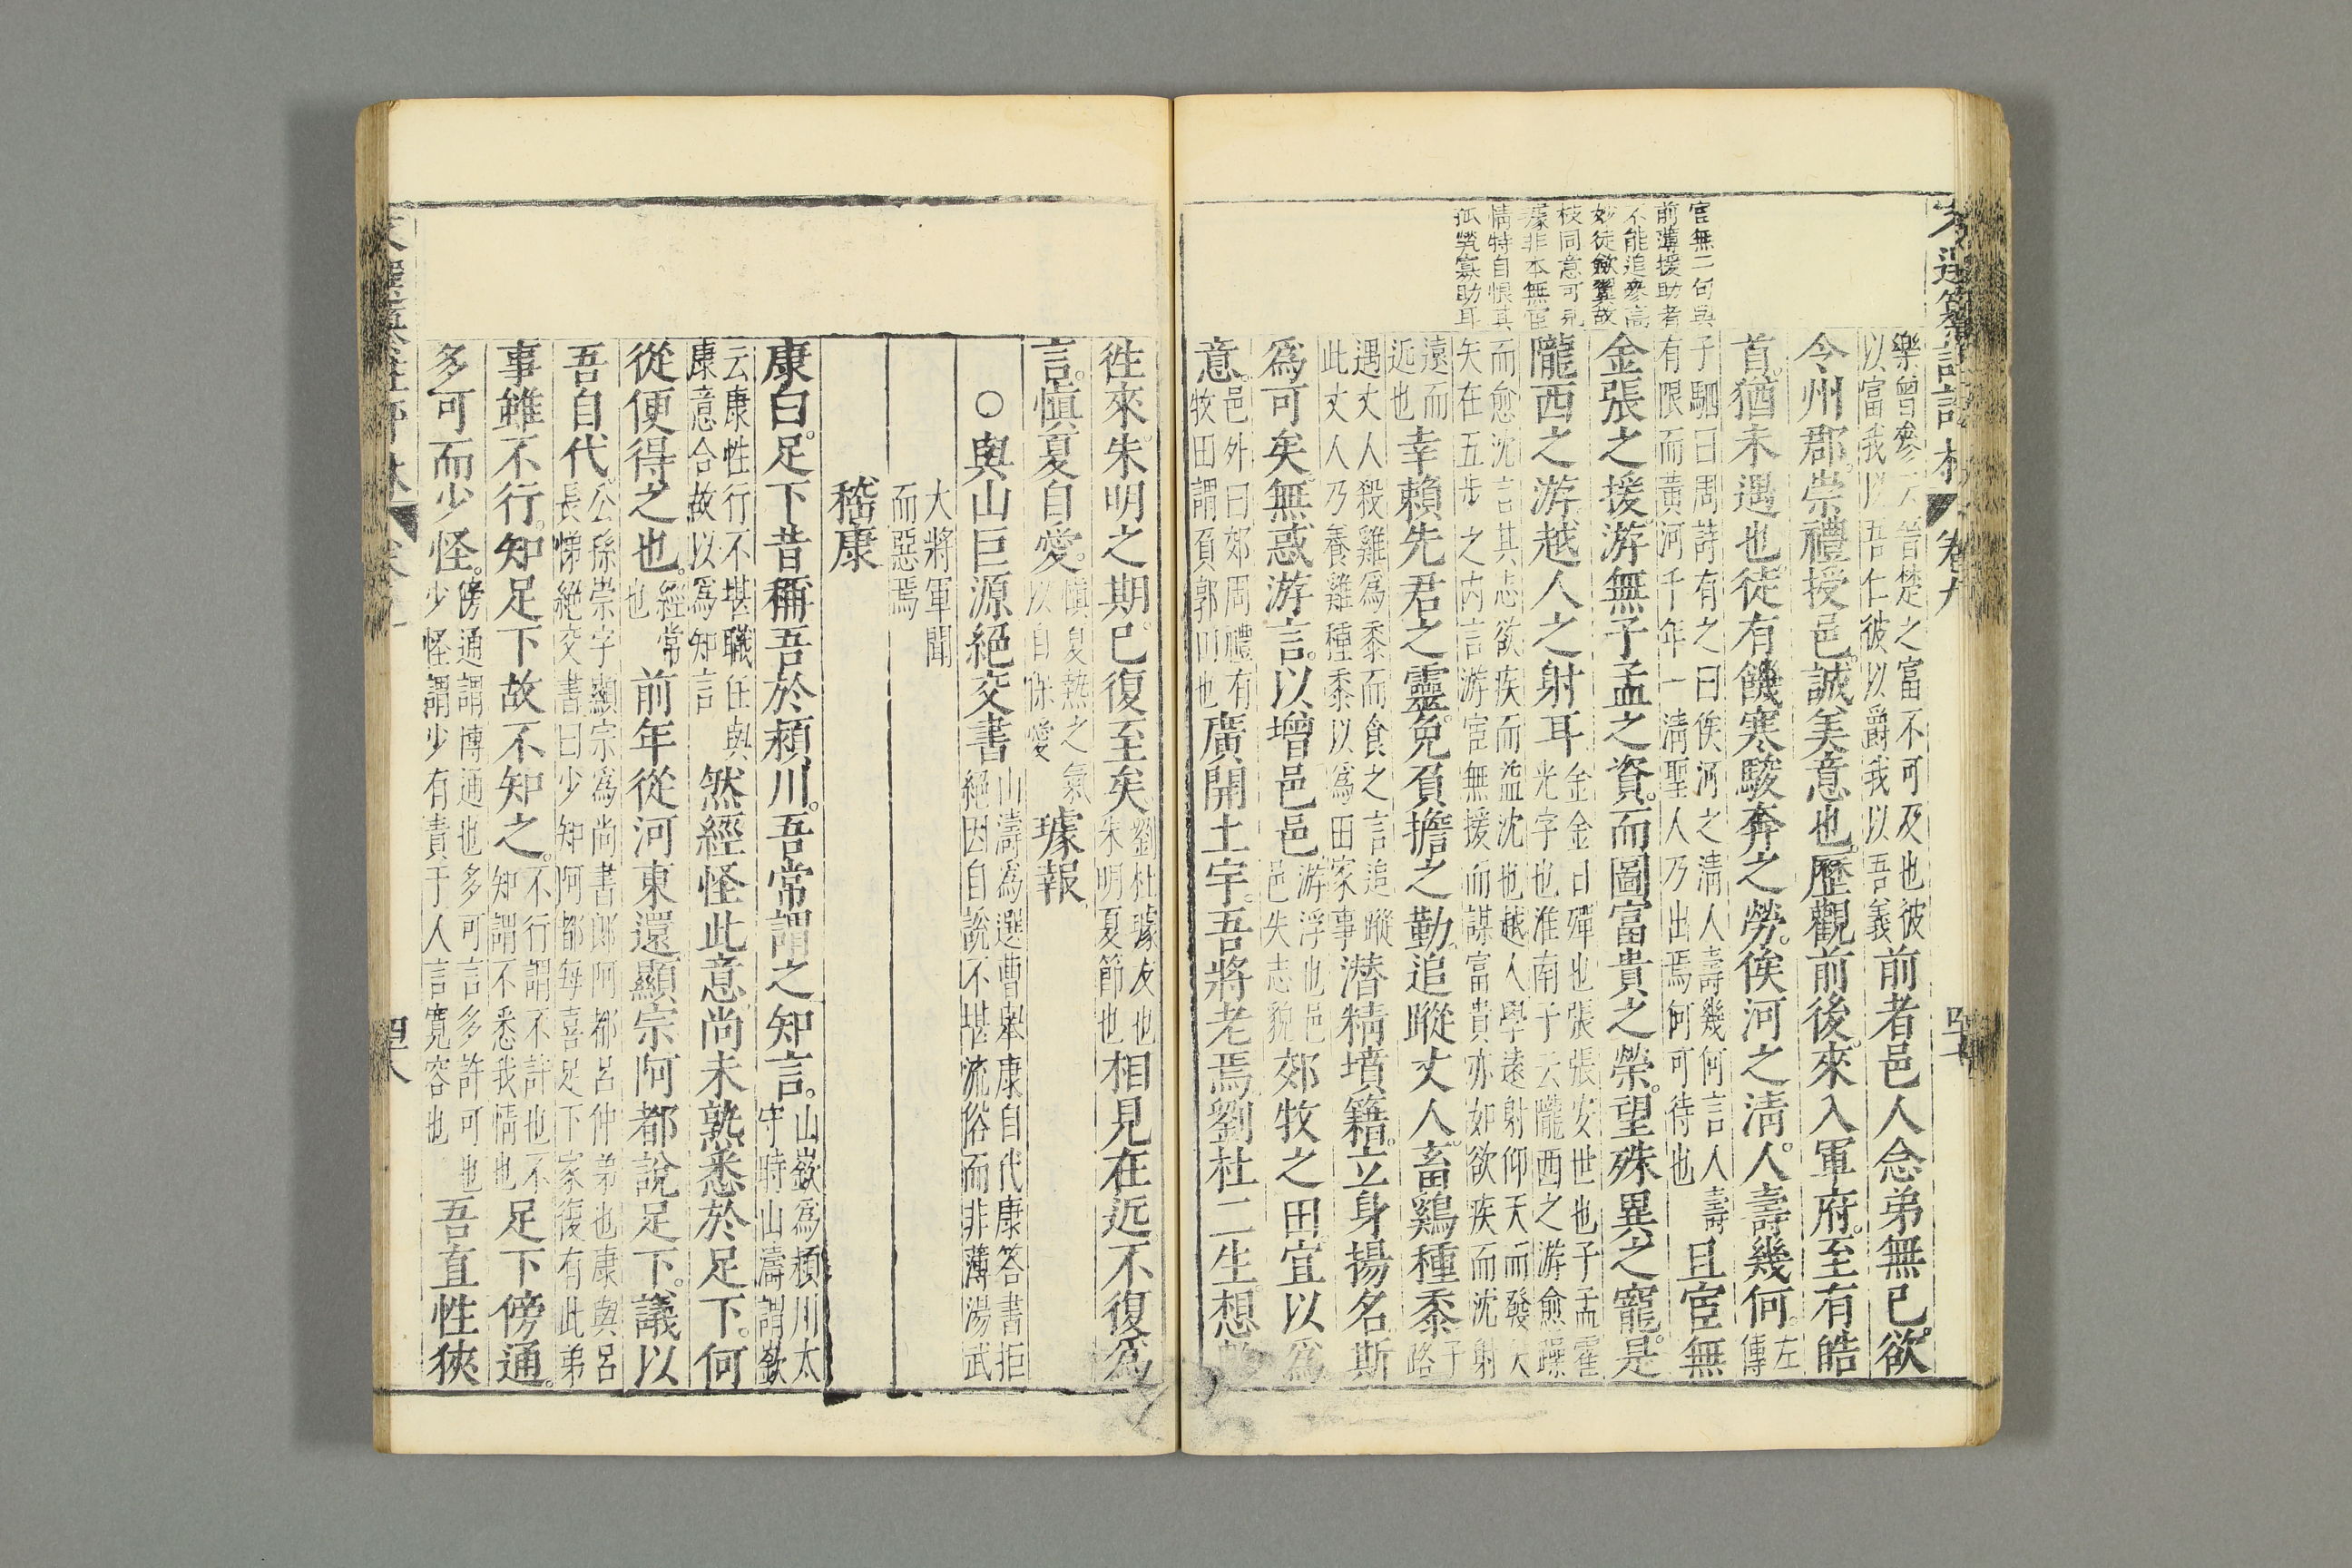 文選纂註評林 卷九 四十七
宦無二句與
前薄援助者
不能追參高
妙徒欲翼故
枝同意可見
璩非本無宦
情特自恨其
孤煢寡助耳
樂曾參云晉楚之富不可及也彼
以富我以吾仁彼以爵我以吾義
前者邑人念弟無已欲
令州郡崇禮授邑誠美意也歷觀前後來入軍府至有皓
首猶未遇也徒有饑寒駿奔之勞俟河之清人壽幾何
左
傳
子駟曰周詩有之曰俟河之清人壽幾何言人壽
有限而黃河千年一清聖人乃出焉何可待也
且宦無
金張之援游無子孟之資而圖富貴之榮望殊異之寵是
隴西之游越人之射耳
金金日磾也張張安世也子孟霍
光字也淮南子云隴西之游愈躁
而愈沈言其志欲疾而益沈也越人學遠射仰天而發大
矢在五步之內言游宦無援而謀富貴亦如欲疾而沈射
遠而
近也
幸賴先君之靈免負擔之勤追蹤丈人畜鷄種黍
子
路
遇丈人殺雞爲黍而食之言追蹤
此丈人乃養雞種黍以爲田家事
潛精墳籍立身揚名斯
爲可矣無惑游言以增邑邑
游浮也邑
邑失志貌
郊牧之田宜以爲
意
邑外曰郊周禮有
牧田謂負郭田也
廣開土宇吾將老焉劉杜二生想
徃來朱明之期已復至矣
劉杜璩友也
朱明夏節也
相見在近不復爲
言慎夏自愛
慎夏熱之氣
以自保愛
璩報
○與山巨源絕交書
山濤爲選曹舉康自代康答書拒
絕因自說不堪流俗而非薄湯武
大將軍聞
而惡焉
嵇康
康白足下昔稱吾於潁川吾常謂之知言
山嶔爲潁川太
守時山濤謂嶔
云康性行不堪職任與
康意合故以爲知言
然經怪此意尚未熟悉於足下何
從便得之也
經常
也
前年從河東還顯宗阿都說足下議以
吾自代
公孫崇字顯宗爲尚書郎阿都呂仲弟也康與呂
長悌絕交書曰少知阿都每喜足下家復有此弟
事雖不行知足下故不知之
不行謂不許也不
知謂不悉我情也
足下傍通
多可而少怪
傍通謂博通也多可言多許可也
少怪謂少有責于人言寬容也
吾直性狹
四十八